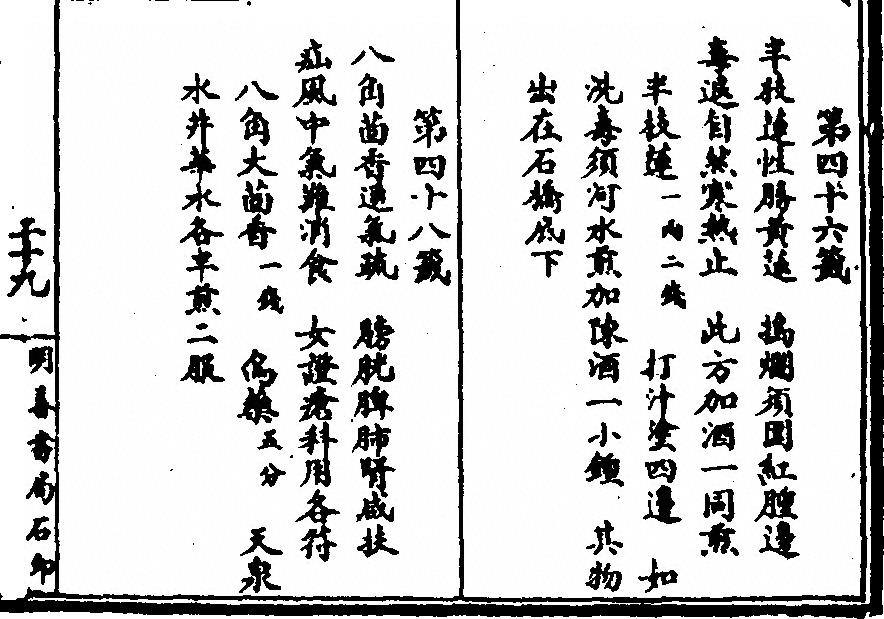 第四十六籤
半枝蓮性勝黃蓮 搗爛須圍紅腫邊
毒退自然寒熱止 此方加酒一同煎
半枝蓮一兩二錢 打汁塗四邊 如
洗毒須河水煎加陳酒一小鍾 其物
出在石橋底下
第四十八籤
八角茴香通氣疏 膀胱脾肺腎咸扶
疝風中氣難消食 女證瘡科用各符
八角大茴香一錢 烏藥五分 天泉
水井華水各半煎二服
三十九
明善書局石印